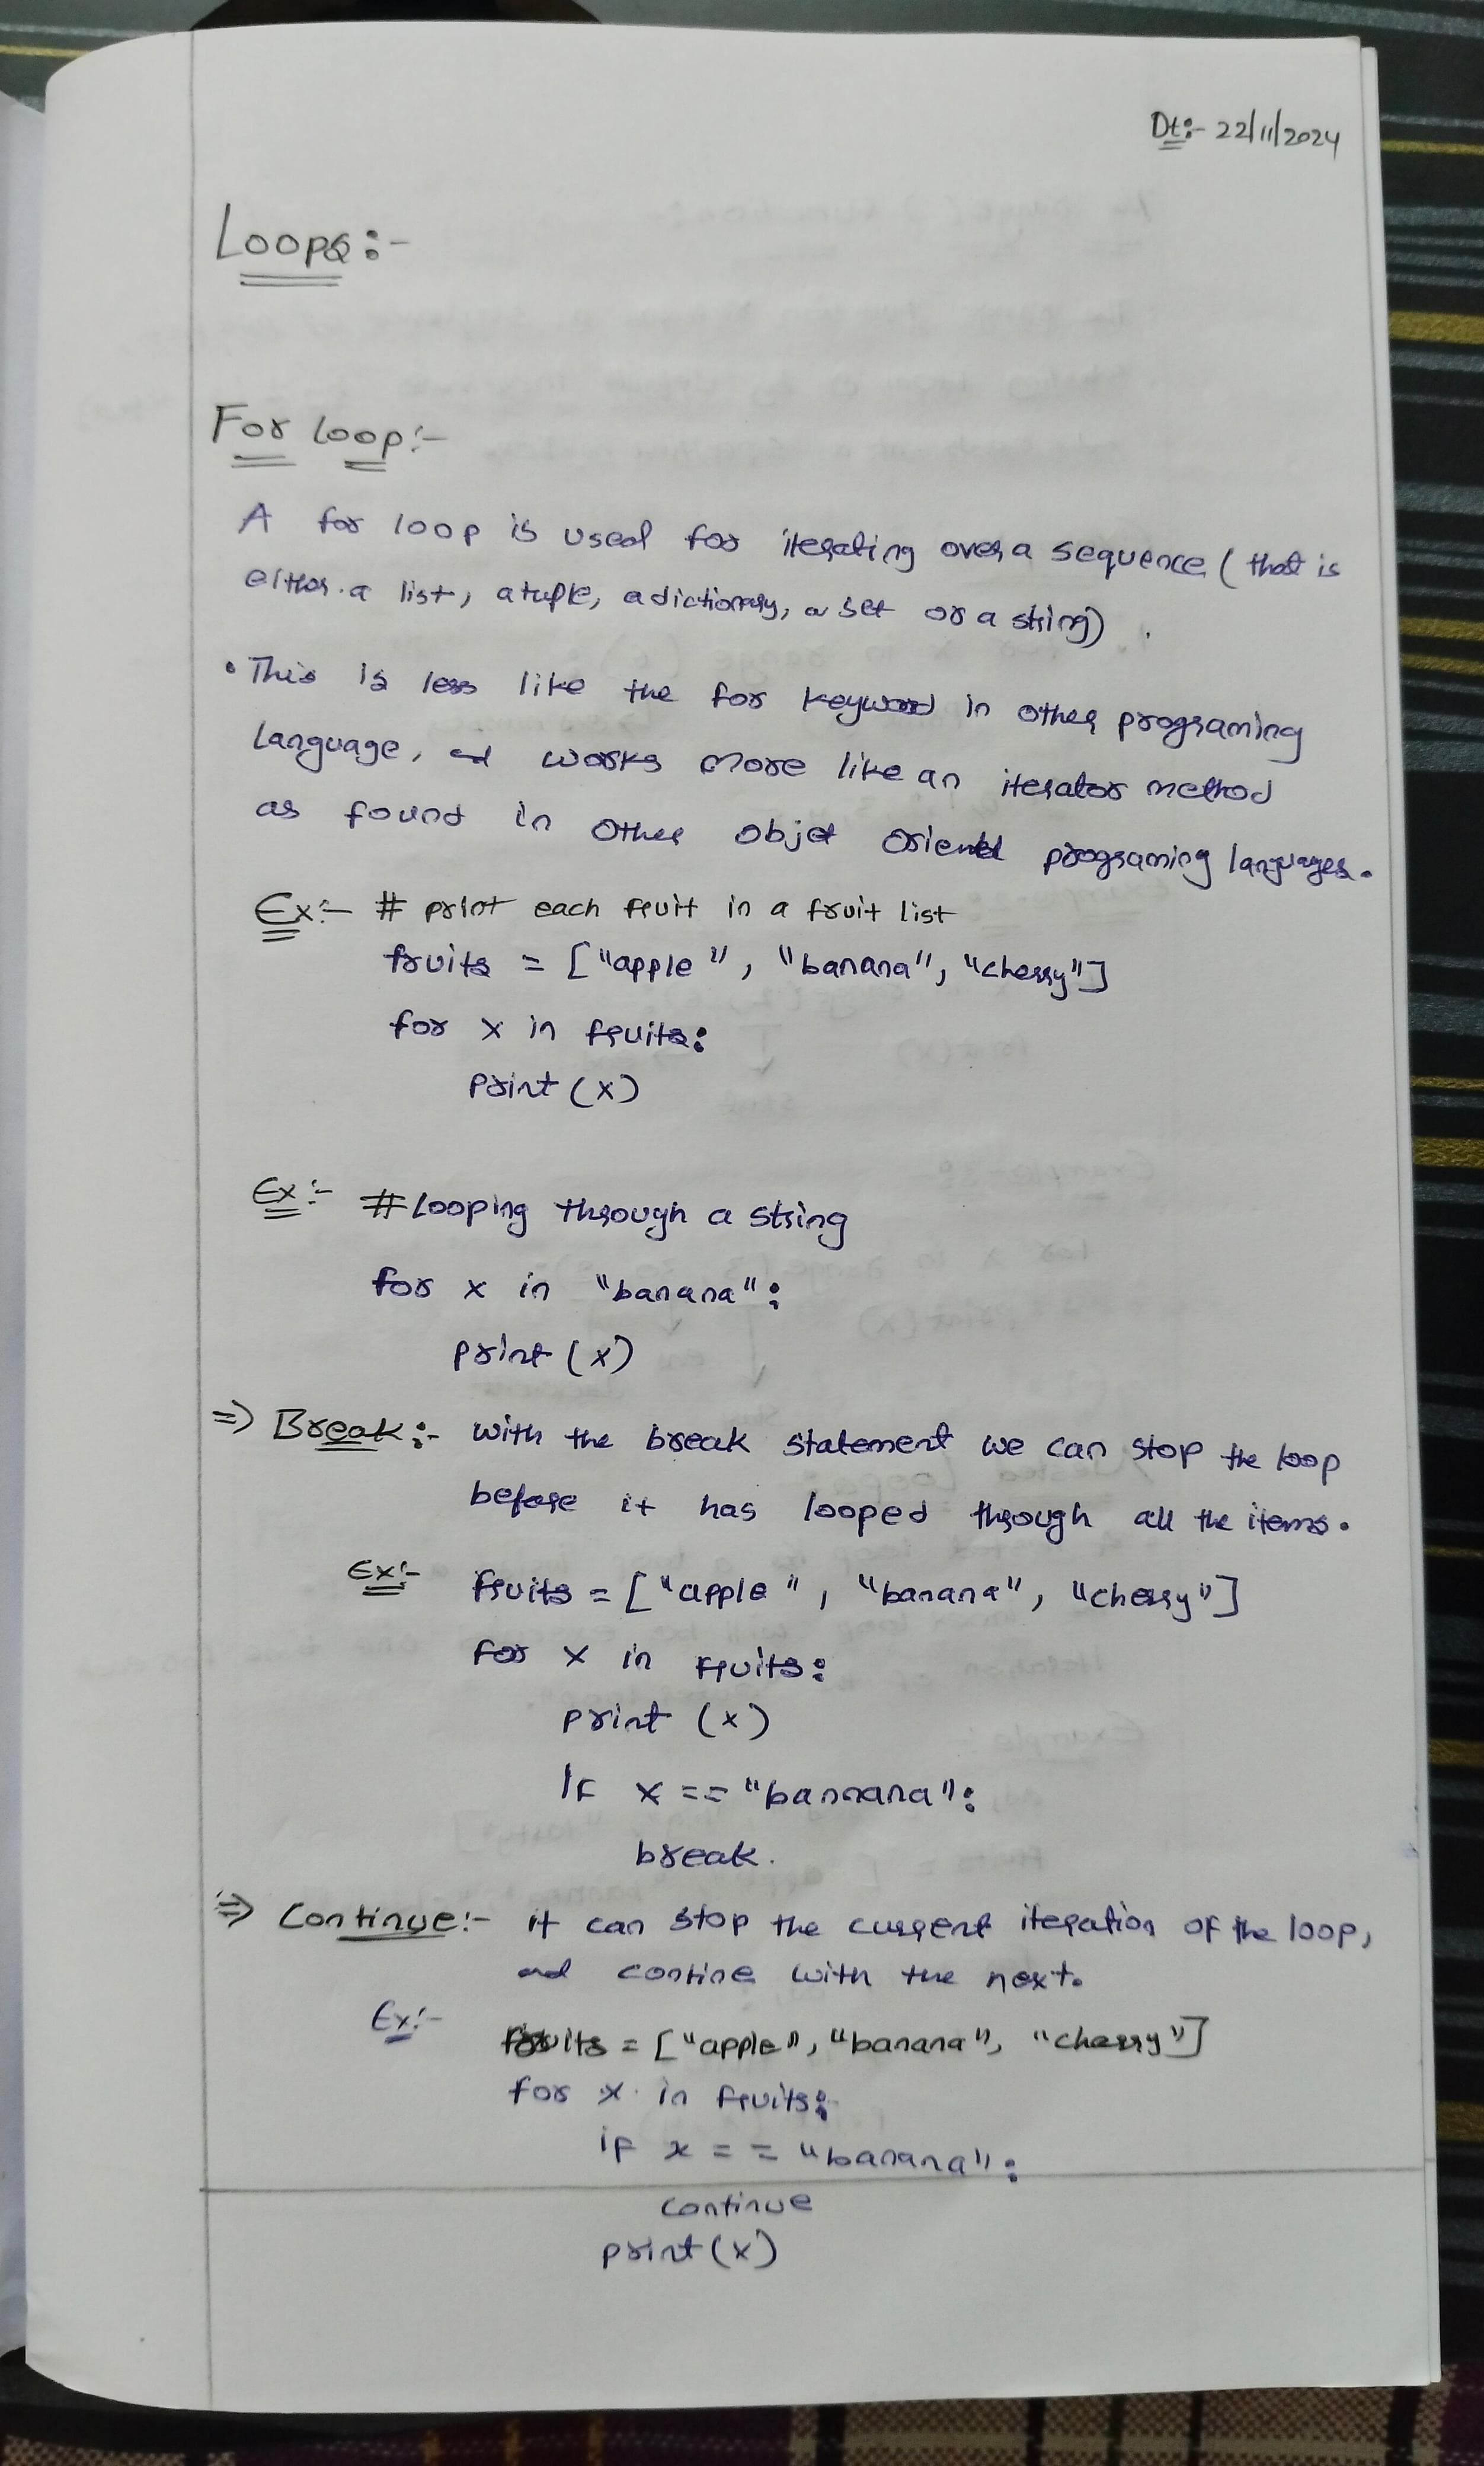 Dt:- 22/11/2024
Loops:-
For loop:-
A for loop is used for iterating over a sequence (that is
either a list, a tuple, a dictionary, a set or a string).
• This is less like the for keyword in other programing
language, and works more like an iterator method
as found in other objet oriented programing languages.
Ex:- # print each fruit in a fruit list
fruits = ["apple", "banana", "cherry"]
for x in fruits:
print (x)
Ex:- # Looping through a string
for x in "banana":
print (x)
=> Break:- with the break statement we can stop the loop
before it has looped through all the items.
Ex:- fruits = ["apple", "banana", "cherry"]
for x in fruits:
print (x)
If x == "bannana":
break.
=> Continue:- it can stop the current iteration of the loop,
and contine with the next.
Ex:- fruits = ["apple", "banana", "cherry"]
for x in fruits:
if x == "banana":
continue
print (x)